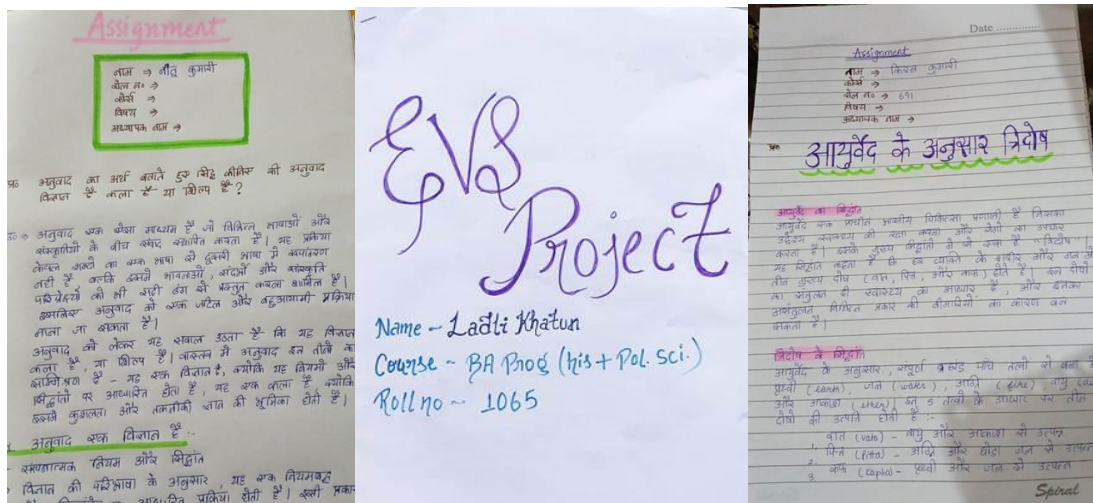 Assignment
नाम → नीतू कुमारी
रोल न० →
कोर्स →
विषय →
अध्यापक नाम →
प्र० अनुवाद का अर्थ बताते हुए सिद्ध कीजिए की अनुवाद
विज्ञान है कला है या शिल्प है ?
उ० अनुवाद एक ऐसा माध्यम है जो विभिन्न भाषाओं और
संस्कृतियों के बीच संवाद स्थापित करता है। यह प्रक्रिया
केवल शब्दों का एक भाषा से दूसरी भाषा में रूपांतरण
नहीं है बल्कि इसमें भावनाओं, संदर्भों और सांस्कृति
परिप्रेक्ष्यों को भी सही ढंग से प्रस्तुत करना शामिल है।
इसलिए अनुवाद को एक जटिल और बहुआयामी प्रक्रिया
माना जा सकता है।
अनुवाद को लेकर यह सवाल उठता है कि यह विज्ञान
कला है, या शिल्प है। वास्तव में अनुवाद इन तीनों का
सम्मिश्रण है - यह एक विज्ञान है, क्योंकि यह नियमों और
सिद्धांतों पर आधारित होता है, यह एक कला है, क्योंकि
इसमें कुशलता और तकनीकी ज्ञान की भूमिका होती है।
1. अनुवाद एक विज्ञान है :-
नियम और सिद्धांत
विज्ञान की परिभाषा के अनुसार, यह एक नियमबद्ध
आधारित प्रक्रिया होती है। इसी प्रकार
EVS
Project
Name - Ladli Khatun
Course - BA Prog (his + Pol. Sci.)
Roll no - 1065
Date
Assignment
नाम → किरन कुमारी
कोर्स →
रोल न० → 691
विषय →
अध्यापक नाम →
प्र० आयुर्वेद के अनुसार त्रिदोष
आयुर्वेद का सिद्धांत
आयुर्वेद एक प्राचीन भारतीय चिकित्सा प्रणाली है जिसका
उद्देश्य स्वास्थ्य की रक्षा करना और रोगों का उपचार
करना है। इसके मुख्य सिद्धांतों में से एक है "त्रिदोष"।
यह सिद्धांत कहता है कि हर व्यक्ति के शरीर और मन में
तीन मुख्य दोष (वात, पित्त, और कफ) होते हैं। इन दोषों
का संतुलन ही स्वास्थ्य का आधार है, और इनका
असंतुलन विभिन्न प्रकार की बीमारियों का कारण बन
सकता है।
त्रिदोष के सिद्धांत
आयुर्वेद के अनुसार, संपूर्ण ब्रह्मांड पांच तत्वों से बना है
पृथ्वी (earth), जल (water), अग्नि (fire), वायु
और आकाश (ether) इन 5 तत्वों के आधार पर तीन
दोषों की उत्पत्ति होती है :-
1. वात (vata) - वायु और आकाश से उत्पन्न
2. पित्त (Pitta) - अग्नि और थोड़ा जल से उत्पन्न
3. कफ (Kapha) - पृथ्वी और जल से उत्पन्न
Spiral